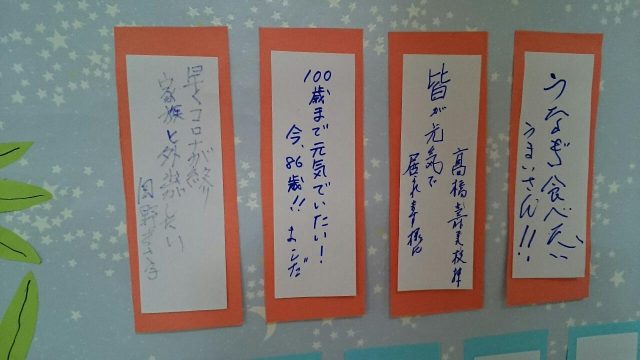 うなぎ食べたい
うまいさん!!
皆が元気で
居
高橋
100歳まで元気でいたい!
今、86歳!! まこだ
早くコロナが終り
家族と外出がしたい